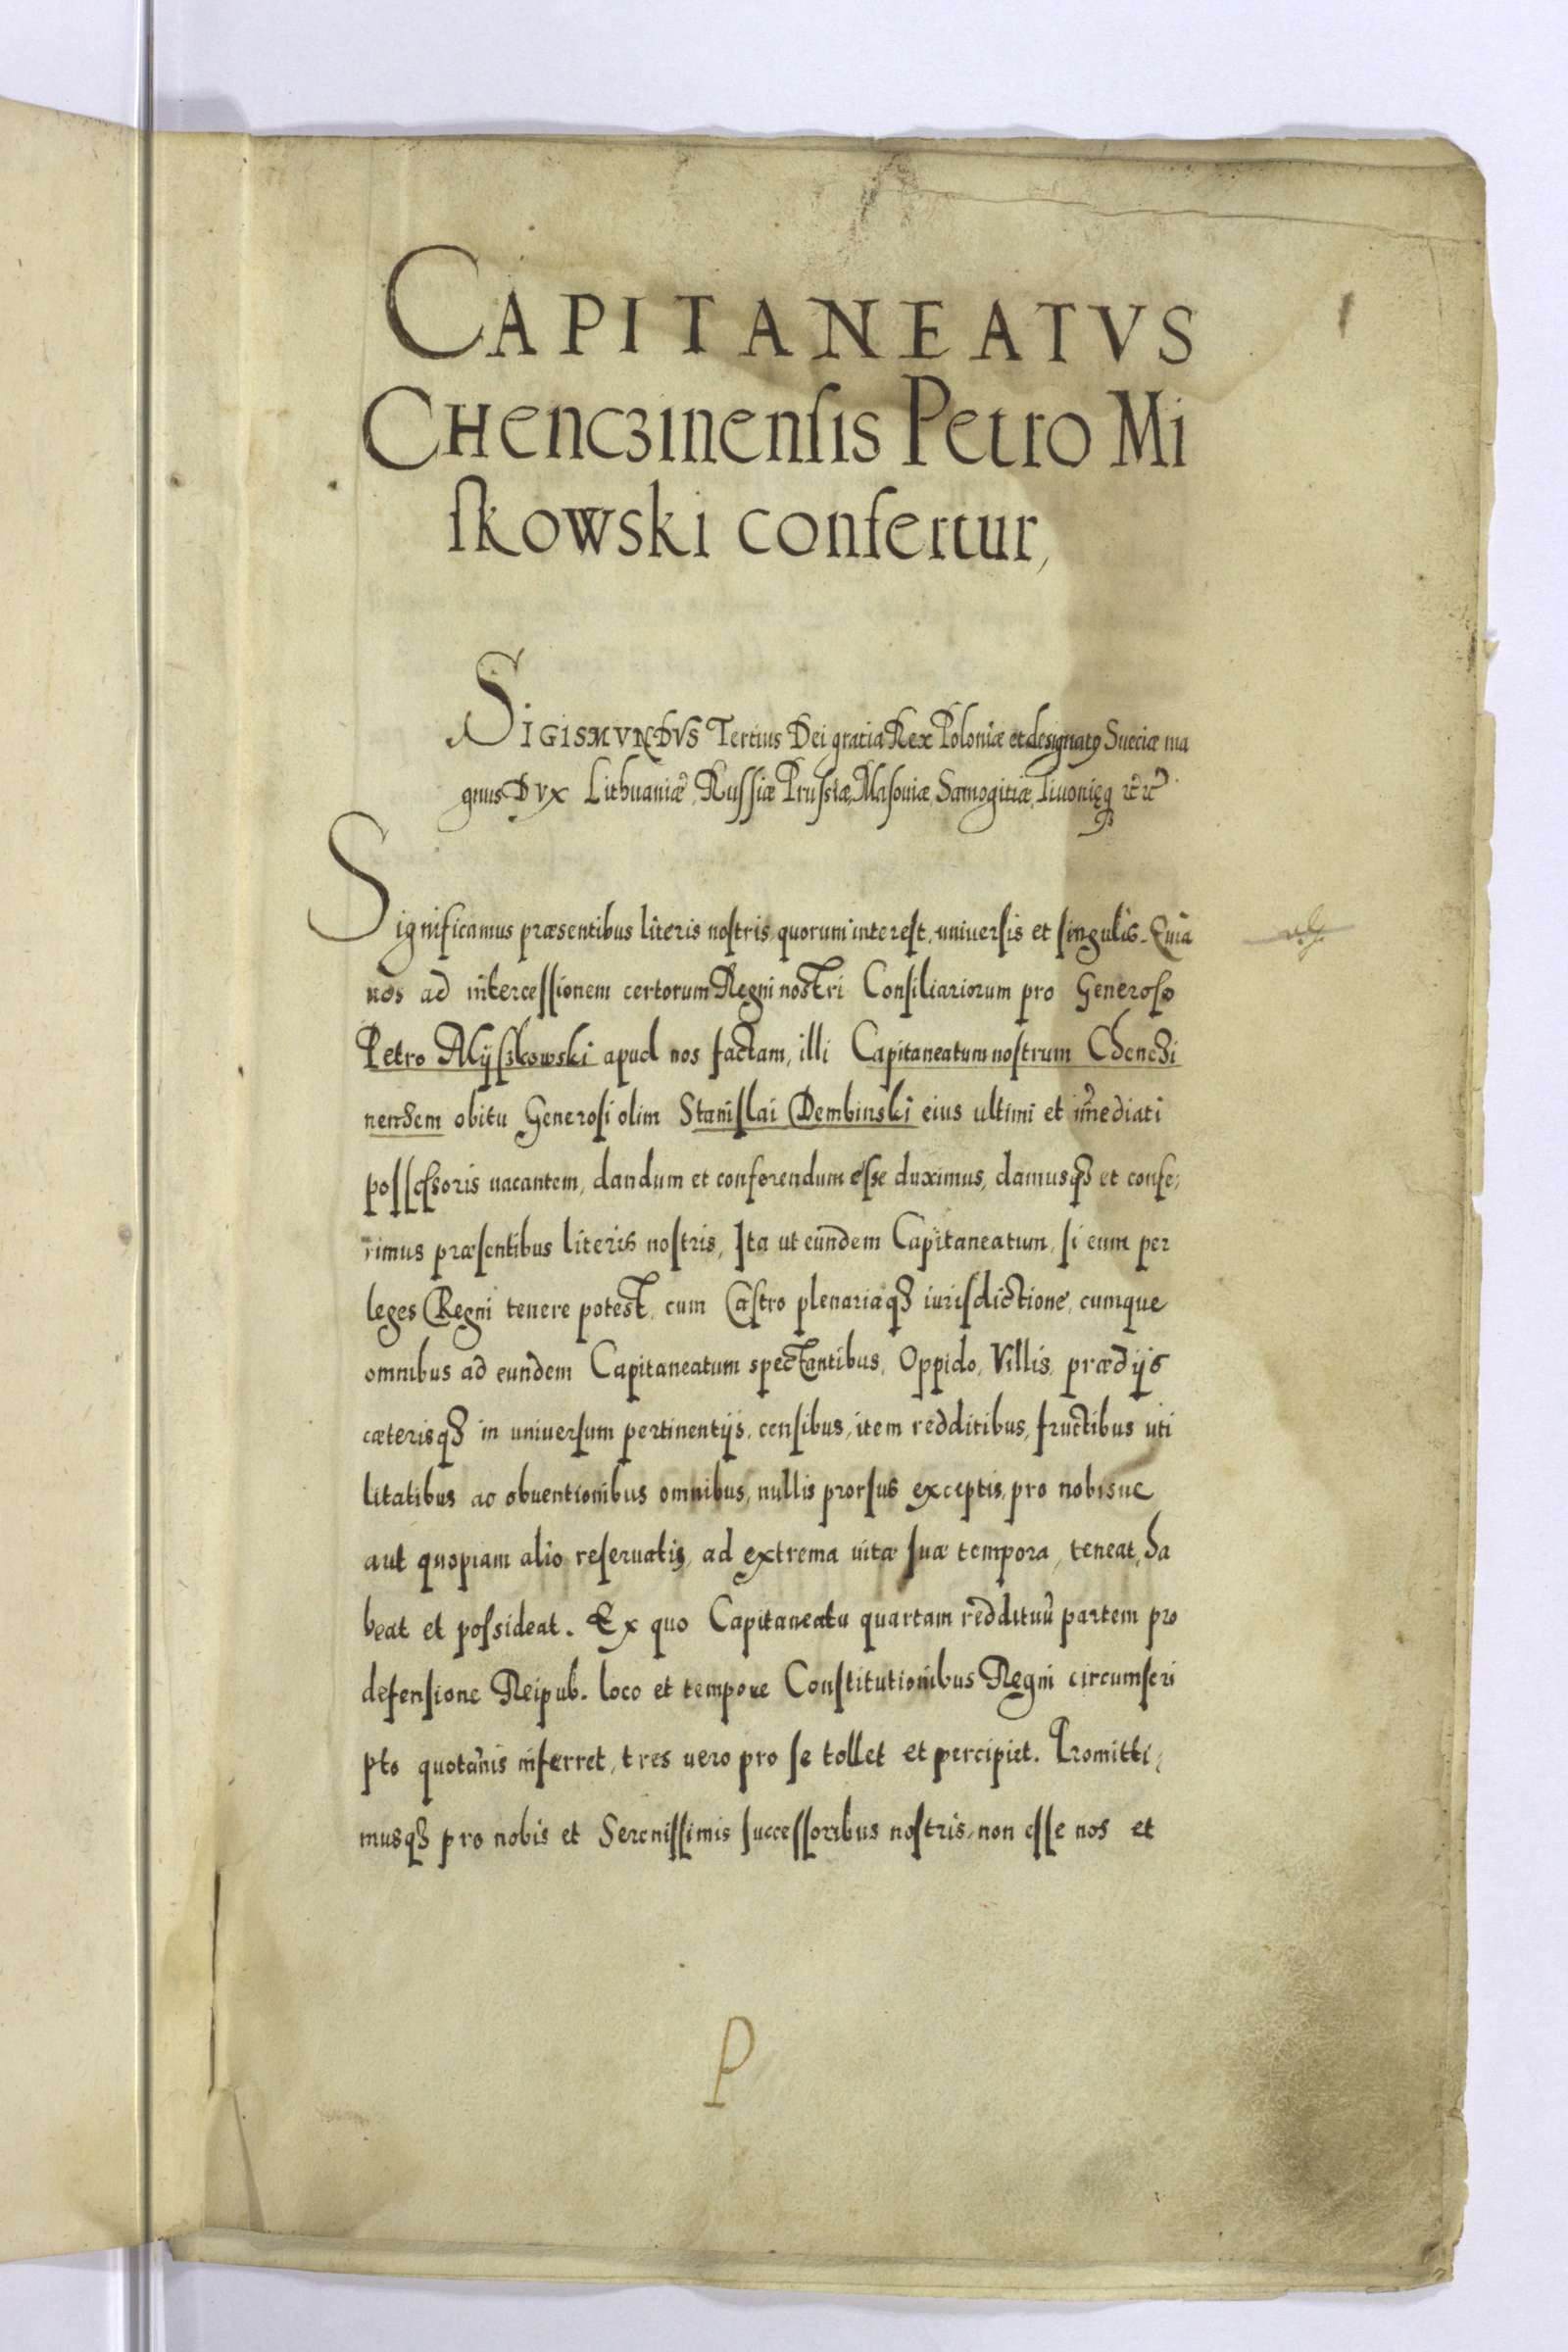 CAPITANEATVS
CHencʒinenſis Petro Mi
ſkowski confertur,
1
SIGISMVNDVS Tertius Dei gratia Rex Poloniæ et designatꝰ Sueciæ ma
gnus DVX Lithuaniæ, Ruſſiæ Pruſsiæ, Maſouiæ, Samogitiæ, Liuonięqꝫ
Significamus præsentibus literis noſtris, quorum intereſt, uniuerſis et ſingulis. Quia
nos ad interceſſionem certorum Regni nostri Conſiliariorum pro Generoſo
Petro Myſzkowski apud nos factam, illi Capitaneatum noſtrum Chenczi
nensem obitu Generoſi olim Staniſlai Dembinski eius ultimi et im̃ediati
poſſeſsoris uacantem, dandum et conferendum eſse duximus, damusqꝫ et confe,
rimus præſentibus literis noſtris, Ita ut eundem Capitaneatum, ſi eum per
leges Regni tenere potest, cum Caſtro plenariaqꝫ iuriſdictione, cumque
omnibus ad eundem Capitaneatum spectantibus, Oppido, Villis, prædijs
cæterisqꝫ in uniuerſum pertinentijs, cenſibus, item redditibus, fructibus uti
litatibus ac obuentionibus omnibus, nullis prorſus exceptis, pro nobisue
aut quopiam alio reſeruatis, ad extrema uitæ ſuæ tempora, teneat, ha
beat et poſsideat. Ex quo Capitaneatu quartam reddituũ partem pro
defenſione Reipub. loco et tempore Conſtitutionibus Regni circumſcri
pto quotãnis inferret, tres uero pro ſe tollet et percipiet. Promitti,
musqꝫ pro nobis et Sereniſſimis ſucceſſoribus noſtris, non eſſe nos et
P